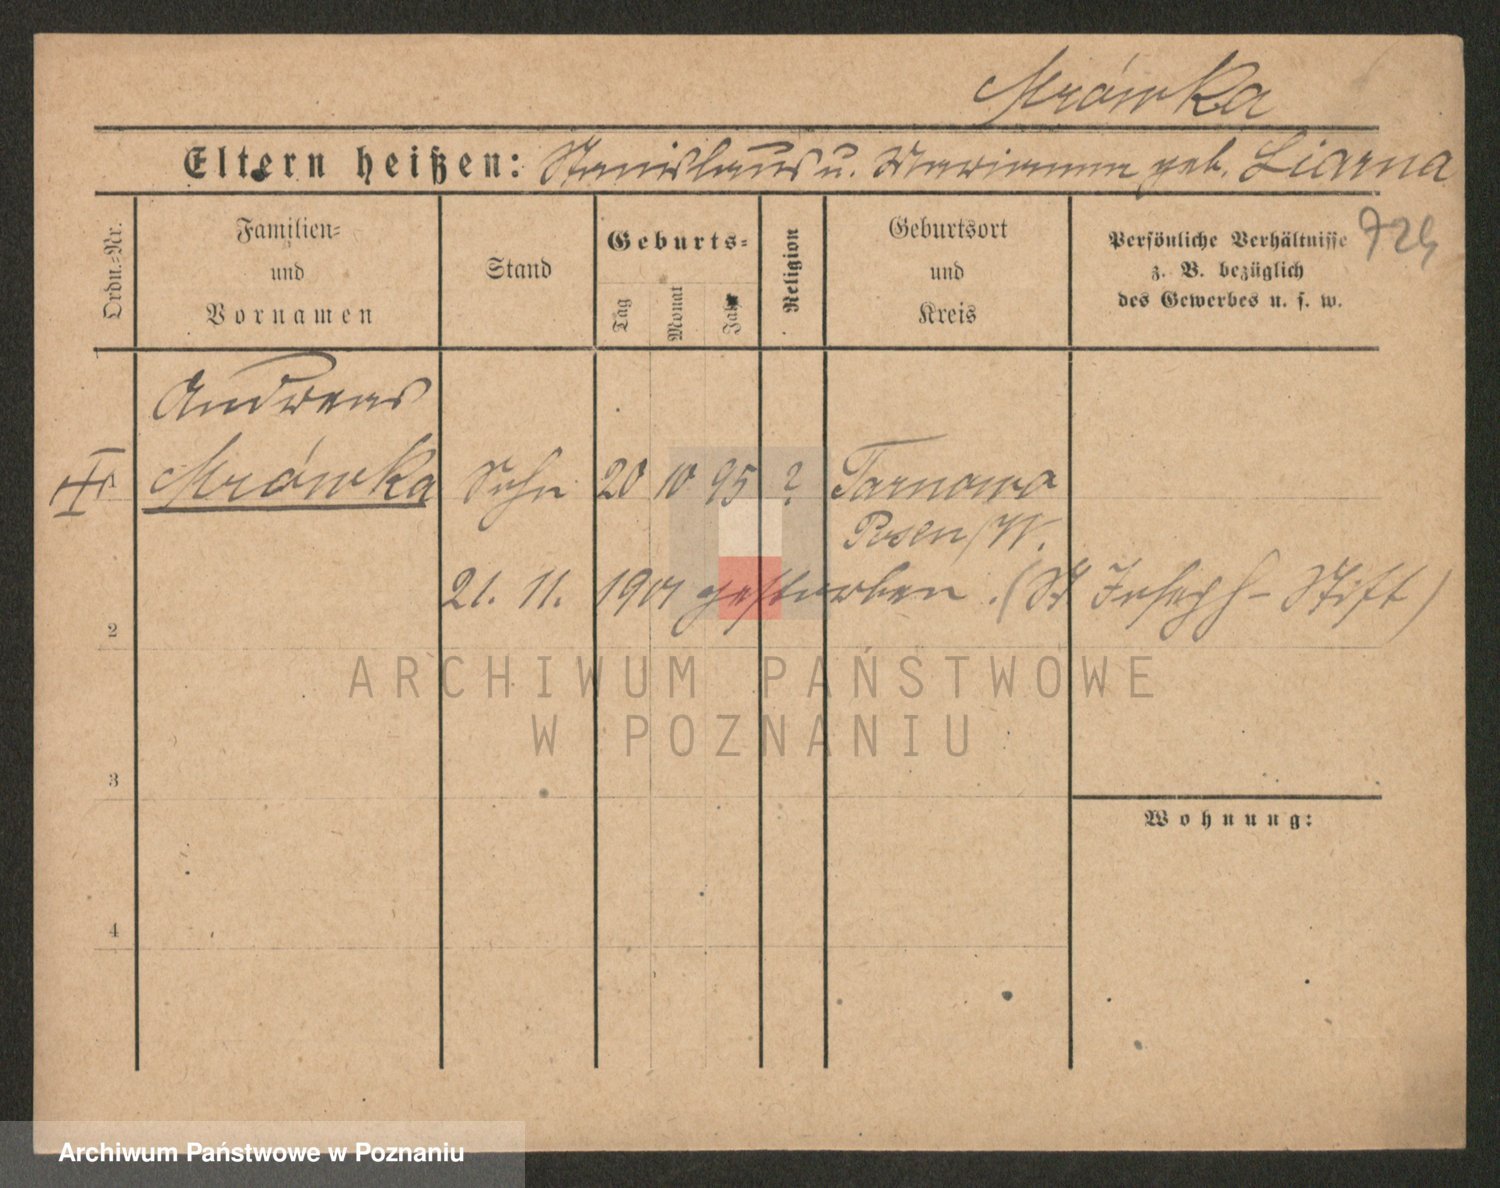 Mrówka
Eltern heißen: Stanislaus u. Marianna geb. Liarna
Ordn.-Nr.
Familien- und Vornamen
Stand
Geburts-
Tag
Monat
Jahr
Religion
Geburtsort und Kreis
Persönliche Verhältnisse z. B. bezüglich des Gewerbes u. s. w.
Andreas
Mrówka Sohn 20 10 95 ? Tarnowo
Posen/W.
21. 11. 1901 gestorben. (St Joseph-Stift)
2
3
4
Wohnung:
ARCHIWUM PAŃSTWOWE
W POZNANIU
Archiwum Państwowe w Poznaniu